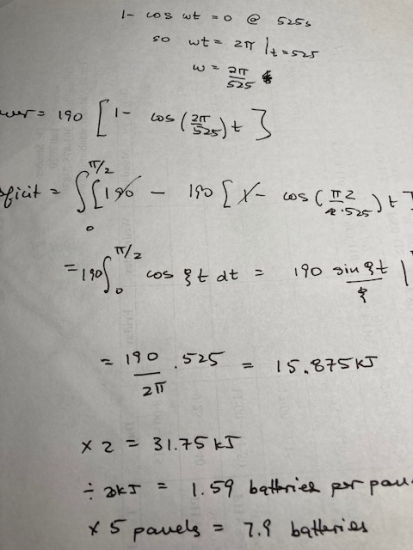 1 - cos wt = 0 @ 525s
so wt = 2π |t=525
w = 2π/525
wer = 190 [ 1 - cos (2π/525) t ]
eficit = ∫₀^π/2 [190 - 190 [1 - cos (π2/525) t ]
= 190 ∫₀^π/2 cos ξt dt = 190 sin ξt/ξ |
= 190/2π . 525 = 15.875 kJ
x 2 = 31.75 kJ
÷ kJ = 1.59 batteries per pan
x 5 panels = 7.9 batteries